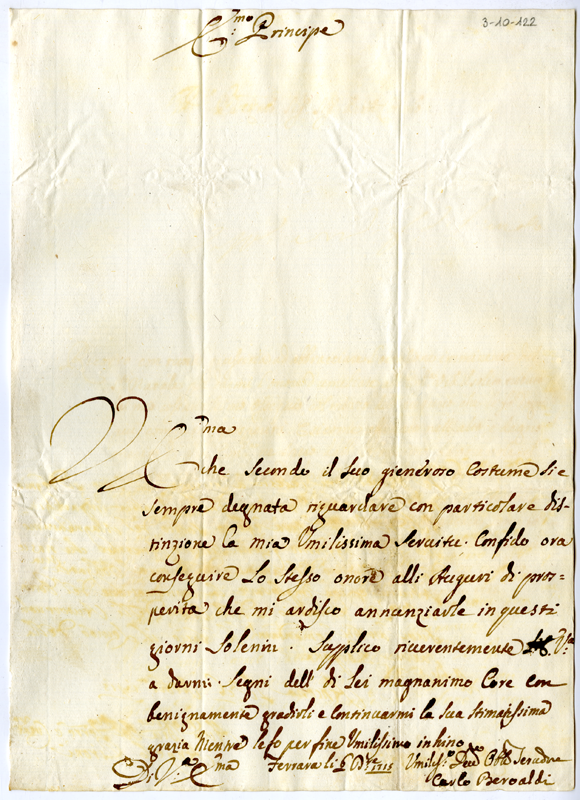 3-10-122
E.mo Principe
V. E.ma
che secondo il suo gieneroso Costume si è
sempre degnata riguardare con particolare dis-
tinzione la mia Umilissima Servitù. Confido ora
conseguire lo stesso onore alli Auguri di pros-
perità che mi ardisco annunziarle in questi
giorni Solenni. Supplico riverentemente V.ra
a darmi Segni dell' di Lei magnanimo Core con
benignamente gradirli e continuarmi la sua stimatissima
grazia Mentre le fo per fine Umilissimo inchino
Di V.a E.ma Ferrara li 1715 Umiliss.o Dev.o Obb. Servidore
Carlo Beroaldi